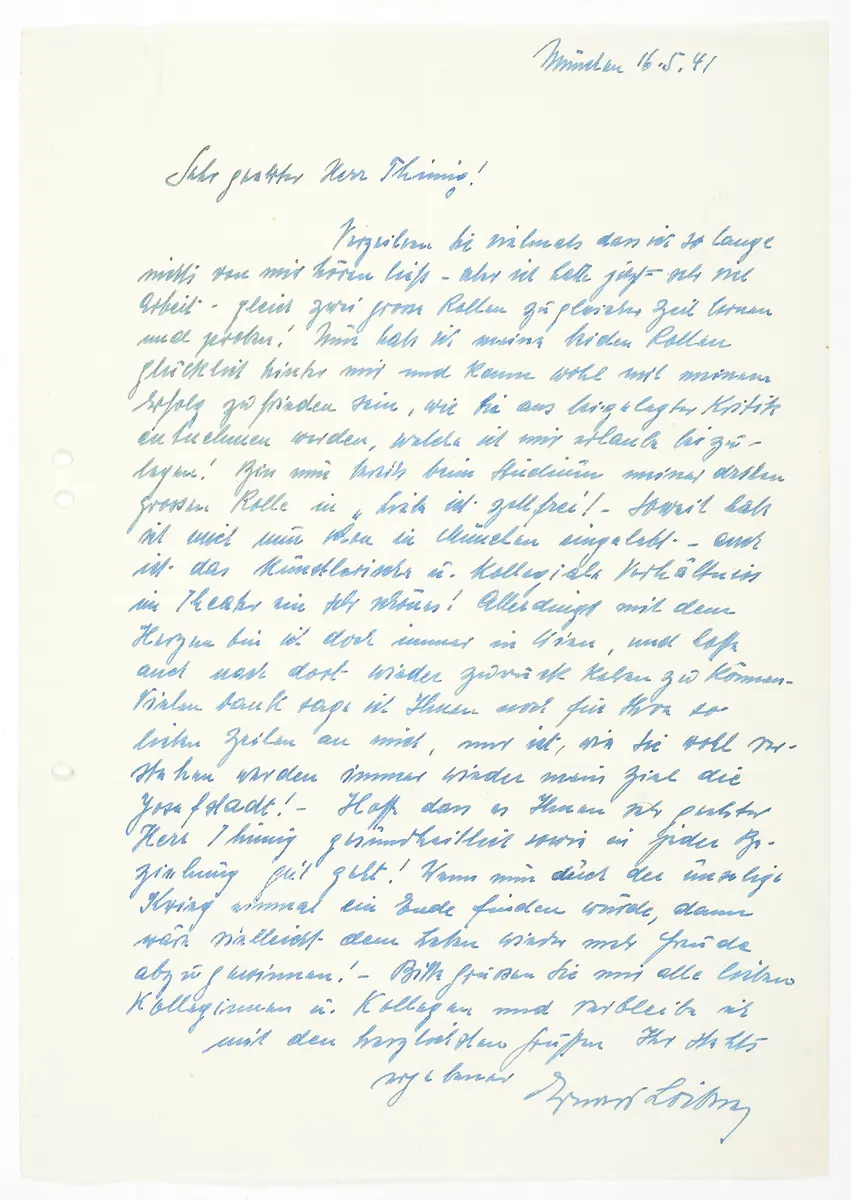 München 16.5.41
Sehr geehrter Herr Thimig!
Verzeihen Sie vielmals dass ich so lange
nichts von mir hören ließ - aber ich hatte jetzt sehr viel
Arbeit - gleich zwei grosse Rollen zu gleicher Zeit lernen
und proben! Nun habe ich meine beiden Rollen
glücklich hinter mir und kann wohl mit meinem
Erfolg zufrieden sein, wie Sie aus beigelegter Kritik
entnehmen werden, welche ich mir erlaube beizu-
legen! Bin nun bereits beim Studium meiner dritten
grossen Rolle in „Liebe ist zollfrei! - Soweit habe
ich mich nun schon in München eingelebt - auch
ist das Künstlerische u. Kollegiale Verhältnis
im Theater ein sehr schönes! Allerdings mit dem
Herzen bin ich doch immer in Wien, und hoffe
auch nach dort wieder zurück kehren zu können-
Vielen Dank sage ich Ihnen noch für Ihre so
lieben Zeilen an mich, nur ist, wie Sie wohl ver-
stehen werden immer wieder mein Ziel die
Josefstadt! - Hoffe dass es Ihnen sehr geehrter
Herr Thimig gesundheitlich sowie in jeder Be-
ziehung gut geht! Wenn nun doch der unselige
Krieg einmal ein Ende finden würde, dann
wäre vielleicht dem Leben wieder mehr Freude
abzugewinnen! - Bitte grüssen Sie mir alle lieben
Kolleginnen u. Kollegen und verbleibe ich
mit den herzlichsten Grüßen Ihr stets
ergebener